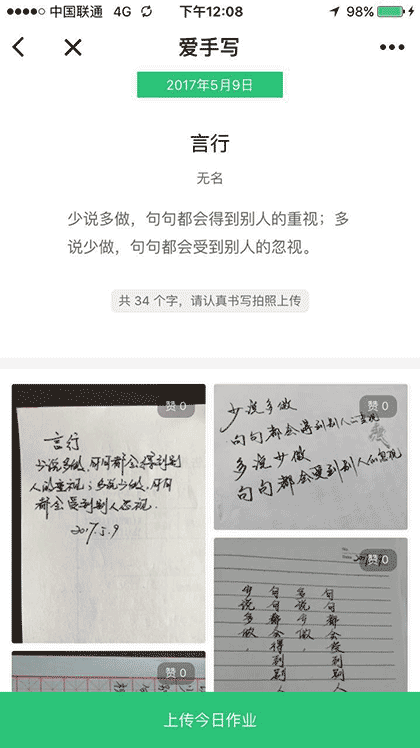 中国联通 4G 下午12:08 98%
爱手写
2017年5月9日
言行
无名
少说多做，句句都会得到别人的重视；多
说少做，句句都会受到别人的忽视。
共 34 个字，请认真书写拍照上传
赞 0
言行
少说多做，句句都会得到别
人的重视；多说少做，句句
都会受到别人忽视.
2017.5.9
赞 0
少说多做
句句都会得到别人重视
多说少做
句句都会受到别人的忽视
赞 0
少说多做，
句句都会得到别人
多说少做
句句都会受到别人
赞 0
上传今日作业